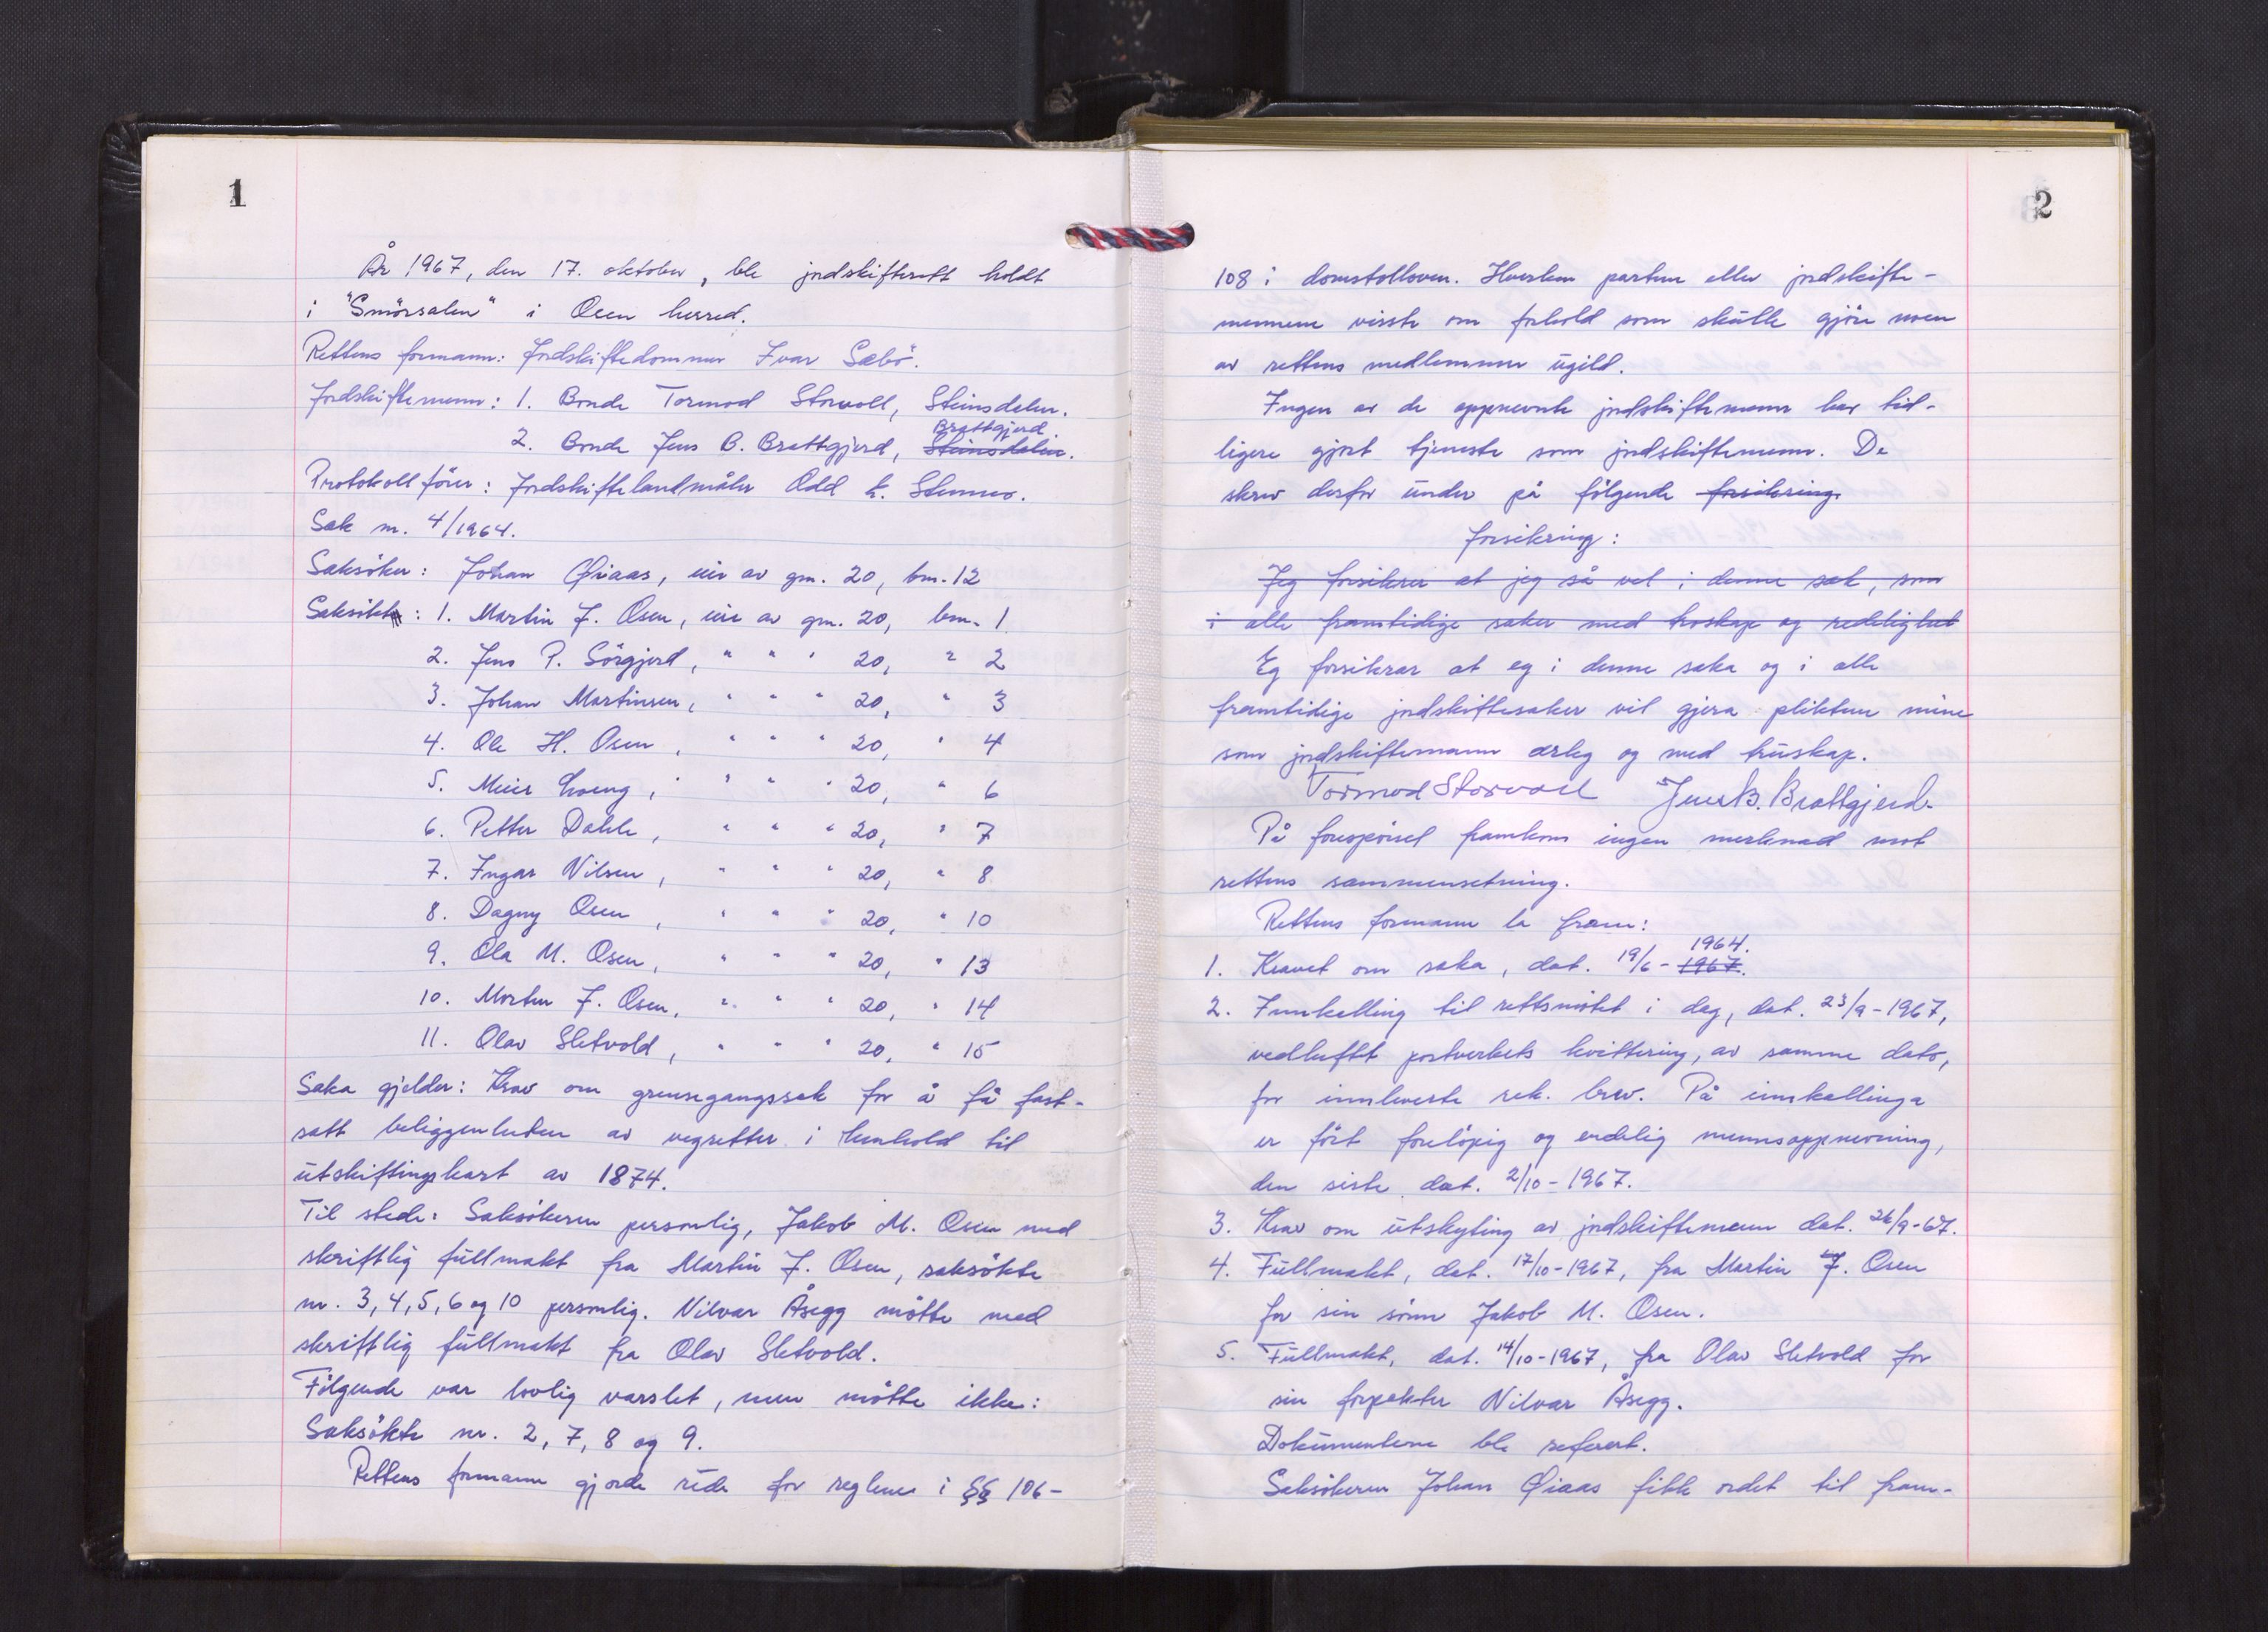 1
År 1967, den 17. oktober, ble jordskifterett holdt
i "Smörsalen" i Osen herred.
Rettens formann: Jordskiftedommer Ivar Sæbö.
Jordskiftemenn: 1. Bonde Tormod Storvoll, Steinsdalen.
Brattgjerd
2. Bonde Jens B. Brattgjerd, Steinsdalen.
Protokollförer: Jordskiftelandmåler Odd K. Stennes.
Sak nr. 4/1964.
Saksöker: Johan Øiaas, eier av gnr. 20, bnr. 12
Saksökte: 1. Martin J. Osen, eier av gnr. 20, bnr. 1
2. Jens P. Sörgjerd, " " " 20, " 2
3. Johan Martinsen, " " " 20, " 3
4. Ole H. Osen, " " " 20, " 4
5. Meier Loeng, " " " 20, " 6
6. Petter Dahle, " " " 20, " 7
7. Ingar Nilsen, " " " 20, " 8
8. Dagny Osen, " " " 20, " 10
9. Ola M. Osen, " " " 20, " 13
10. Morten J. Osen, " " " 20, " 14
11. Olav Sletvold, " " " 20, " 15
Saka gjelder: Krav om grensegangssak for å få fast-
satt beliggenheten av vegretter i henhold til
utskiftingskart av 1874.
Til stede: Saksökeren personlig, Jakob M. Osen med
skriftlig fullmakt fra Martin J. Osen, saksökte
nr. 3, 4, 5, 6 og 10 personlig. Nilvar Åsegg mötte med
skriftlig fullmakt fra Olav Sletvold.
Fölgende var lovlig varslet, men mötte ikke:
Saksökte nr. 2, 7, 8 og 9.
Rettens formann gjorde rede for reglene i §§ 106-
2
108 i domstolloven. Hverken partene eller jordskifte-
mennene visste om forhold som skulle gjöre noen
av rettens medlemmer ugild.
Ingen av de oppnevnte jordskiftemenn har tid-
ligere gjort tjeneste som jordskiftemenn. De
skrev derfor under på fölgende forsikring.
forsikring:
Jeg forsikrer at jeg så vel i denne sak, som
i alle framtidige saker med troskap og redelighet
Eg forsikrar at eg i denne saka og i alle
framtidige jordskiftesaker vil gjera pliktene mine
som jordskiftemann ærleg og med truskap.
Tormod Storvoll Jens B. Brattgjerd
På forespörsel framkom ingen merknad mot
rettens sammensetning.
Rettens formann la fram:
1964.
1. Kravet om saka, dat. 19/6-1967.
2. Innkalling til rettsmötet i dag, dat. 23/9-1967,
vedheftt postverkets kvittering, av samme dato,
for innleverte rek. brev. På innkallinga
er fört forelöpig og endelig mennsoppnevning,
den siste dat. 2/10-1967.
3. Krav om utskyting av jordskiftemenn dat. 26/9-67.
4. Fullmakt, dat. 17/10-1967, fra Martin J. Osen
for sin sönn Jakob M. Osen.
5. Fullmakt, dat. 14/10-1967, fra Olav Sletvold for
sin forpakter Nilvar Åsegg.
Dokumentene ble referert.
Saksökeren Johan Øiaas fikk ordet til fram-